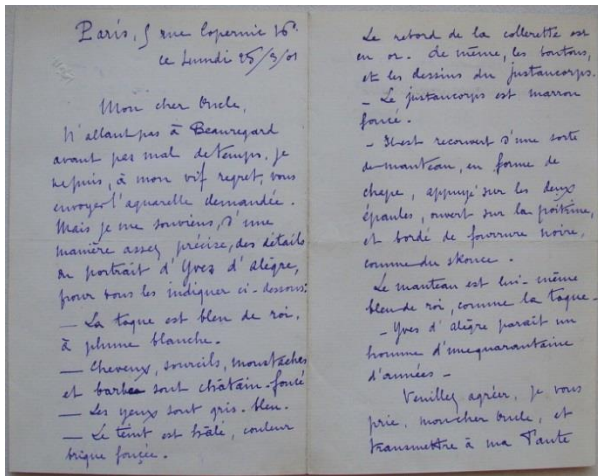 Paris, 5 rue Copernic 16e
ce Lundi 25/3/01
Mon cher Oncle,
N'allant pas à Beauregard
avant pas mal de temps, je
ne puis, à mon vif regret, vous
envoyer l'aquarelle demandée.
Mais je me souviens, d'une
manière assez précise, des détails
du portrait d'Yves d'Alègre,
pour vous les indiquer ci-dessous:
— La toque est bleu de roi,
à plume blanche.
— Cheveux, sourcils, moustaches
et barbe sont châtain-foncé
— Les yeux sont gris-bleu.
— Le teint est hâlé, couleur
brique foncée.
Le rebord de la collerette est
en or. De même, les boutons,
et les dessins du justaucorps.
- Le justaucorps est marron
foncé.
- Il est recouvert d'une sorte
de manteau, en forme de
chape, appuyé sur les deux
épaules, ouvert sur la poitrine,
et bordé de fourrure noire,
comme du skonce.
Le manteau est lui-même
bleu de roi, comme la toque -
- Yves d'Alègre paraît un
homme d'une quarantaine
d'années -
Veuillez agréer, je vous
prie, mon cher Oncle, et
transmettre à ma Tante